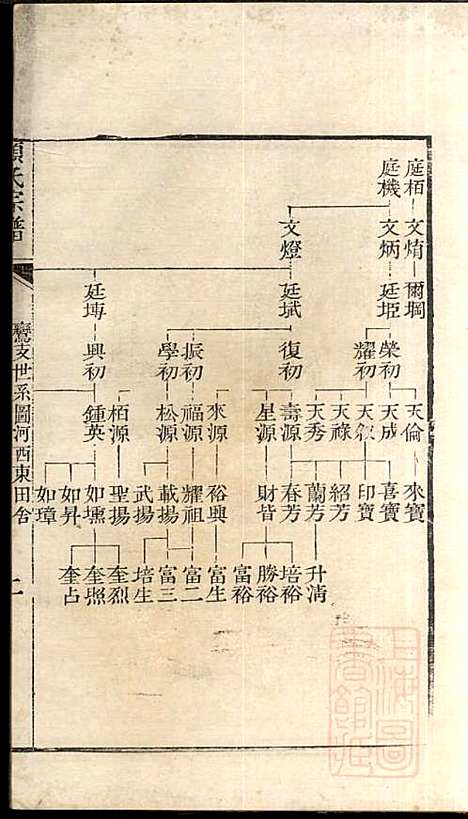 庭栢 庭機
文焴 文炳 文燈
爾堈 廷垭 廷斌 廷塼
榮初 耀初 復初 振初 學初 興初
天倫 天成 天敘 天祿 天秀 壽源 星源 來源 福源 松源 栢源 鍾英
來寶 喜寶 印寶 紹芳 蘭芳 春芳 財皆 裕興 耀祖 載揚 武揚 聖揚 如壎 如昇 如璋
升淸 培裕 勝裕 富裕 富生 富二 富三 培生 奎烈 奎炤 奎占
氏宗譜
鸞支世系圖河西東田舍
二
上海圖書館藏